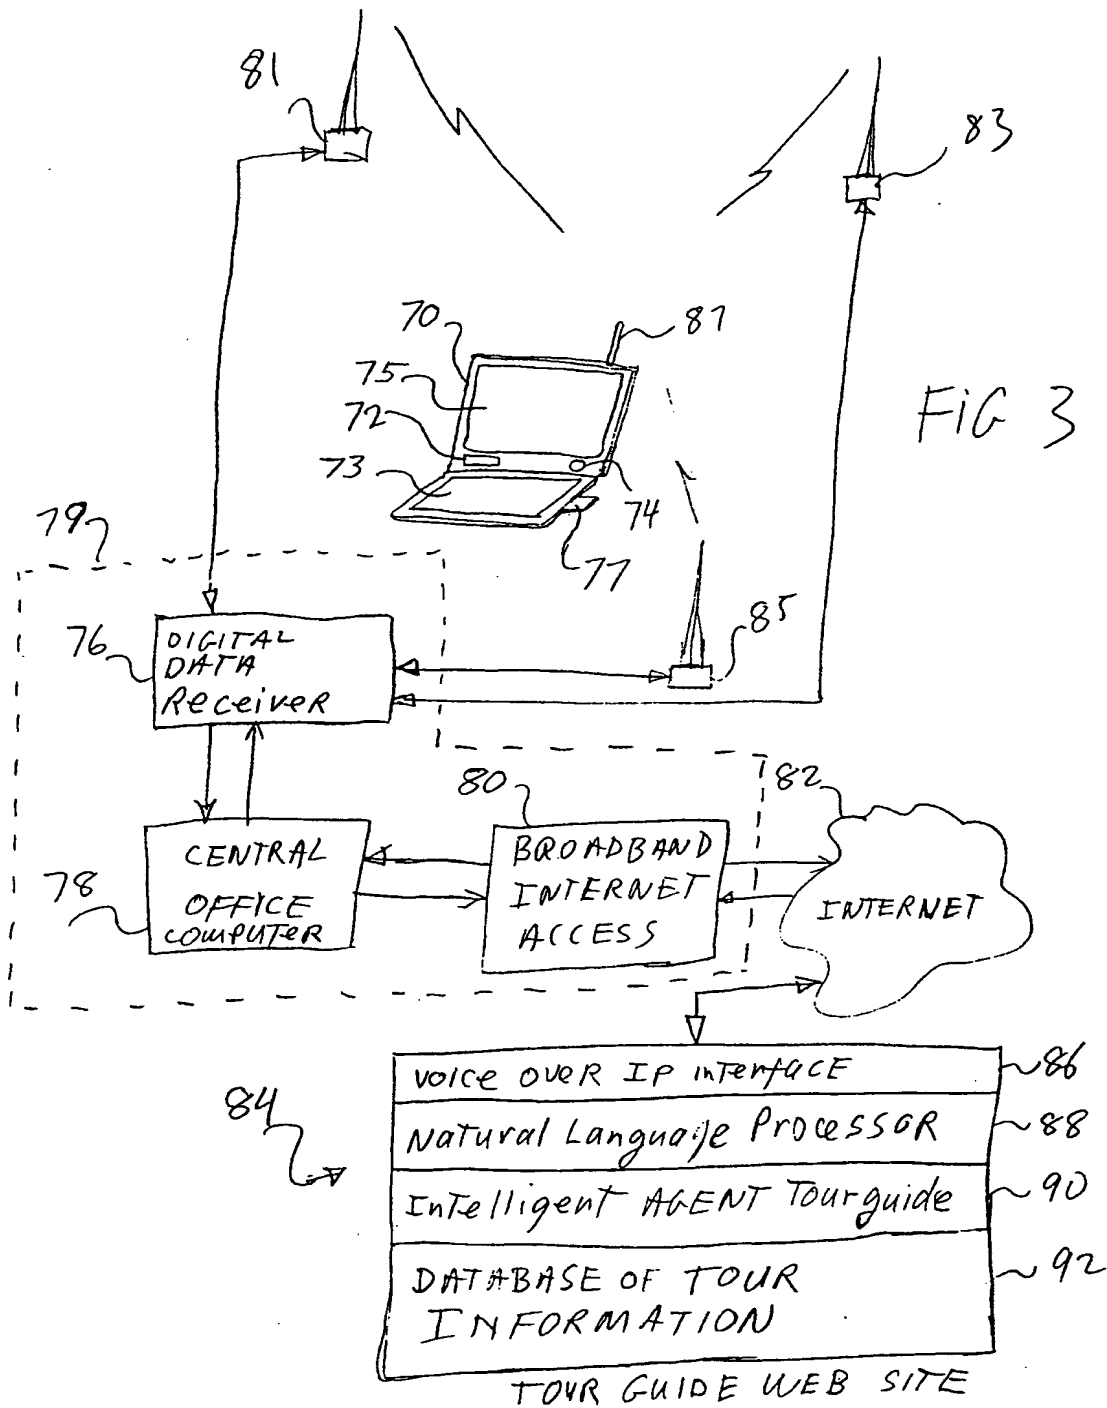 81
83
70
87
75
72
73
74
77
FiG 3
79
76
DIGITAL
DATA
Receiver
85
80
82
CENTRAL
OFFICE
Computer
78
BROADBAND
INTERNET
ACCESS
INTERNET
84
Voice OVER IP interFACE
86
Natural Language ProcessoR
88
Intelligent AGENT Tourguide
90
DATABASE OF TOUR
INFORMATION
92
TOUR GUIDE WEB SITE